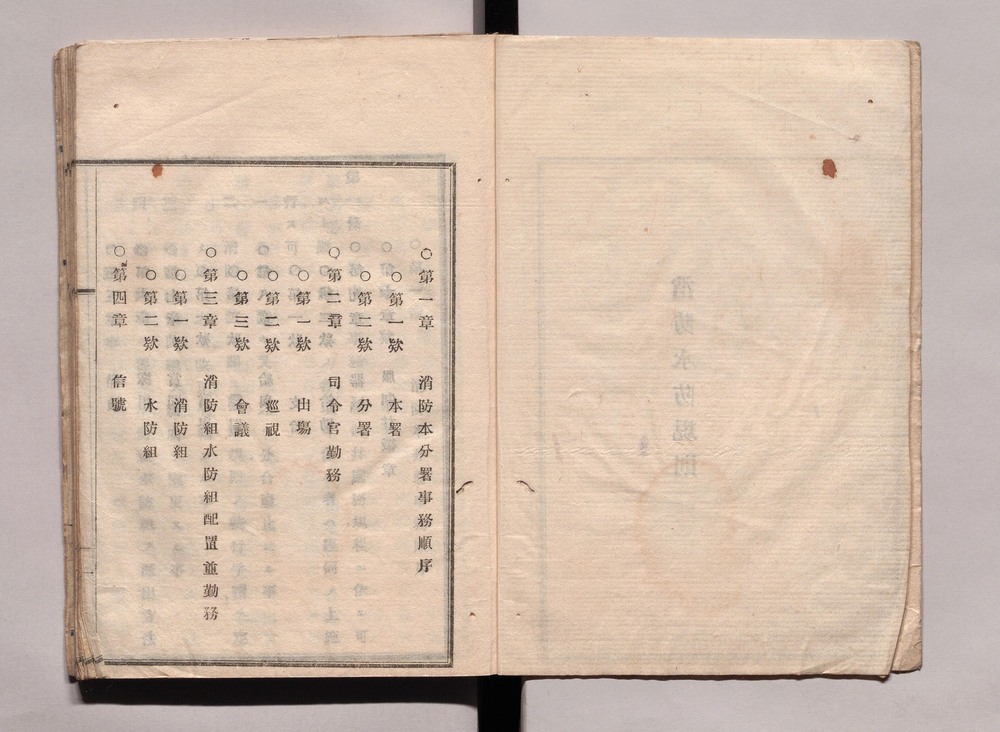 ○第一章　消防本分署事務順序
○第一欵　本署
○第二欵　分署
○第二章　司令官勤務
○第一欵　出塲
○第二欵　巡視
○第三欵　會議
○第三章　消防組水防組配置並勤務
○第一欵　消防組
○第二欵　水防組
○第四章　信號